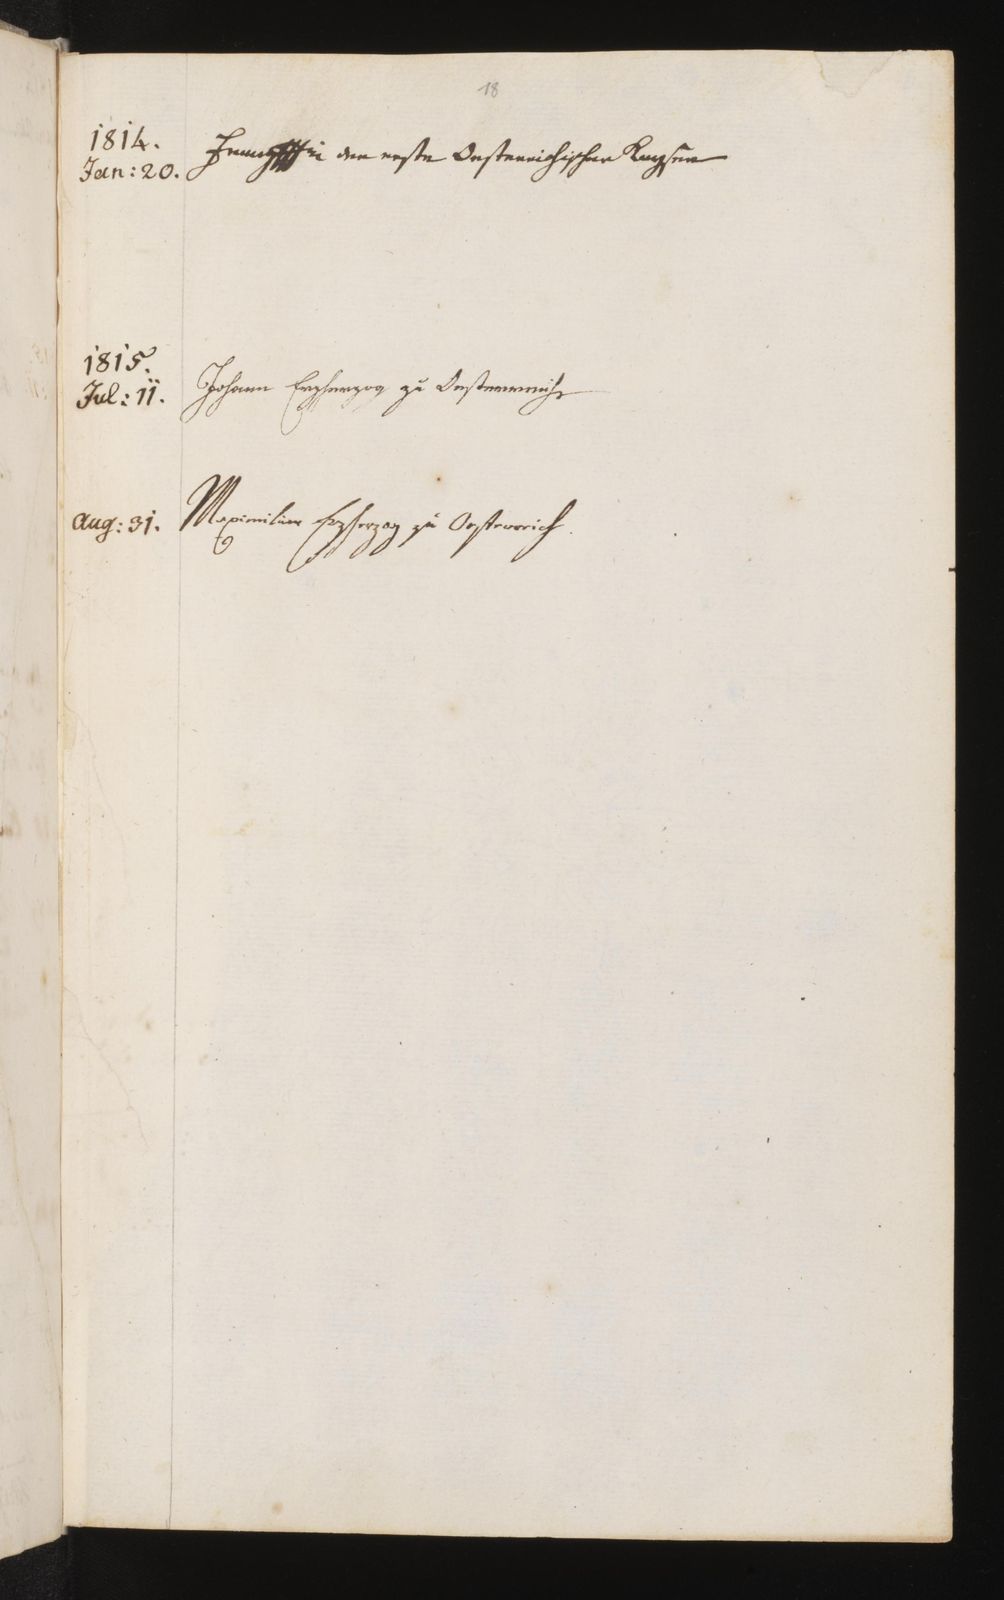 18
1814.
Jan: 20. der erste Oesterreichischer Kayser
1815.
Jul: 11. Johann Erzherzog zu Oesterreich
Aug: 31. Maximilian Erzherzog zu Oesterreich